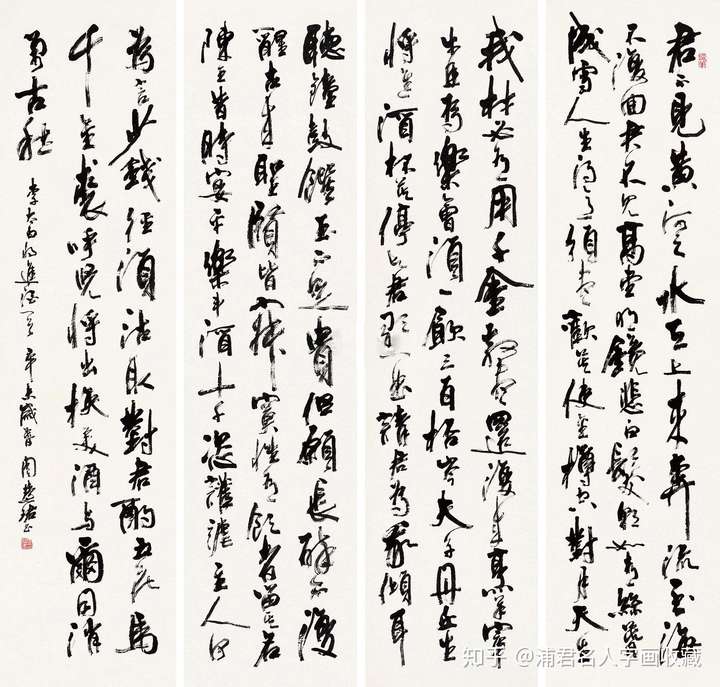 君不見黃河之水天上來奔流到海
不復回君不見高堂明鏡悲白髮朝如青絲暮
成雪人生得意須盡歡莫使金樽空對月天生
我材必有用千金散盡還復來烹羊宰
牛且為樂會須一飲三百杯岑夫子丹丘生
將進酒杯莫停與君歌一曲請君為我傾耳
聽鐘鼓饌玉不足貴但願長醉不復
醒古來聖賢皆寂寞惟有飲者留其名
陳王昔時宴平樂斗酒十千恣讙謔主人何
為言少錢徑須沽取對君酌五花馬
千金裘呼兒將出換美酒與爾同消
萬古愁
李太白將進酒一首 辛未歲春 周慧珺
知乎 @浦君名人字画收藏